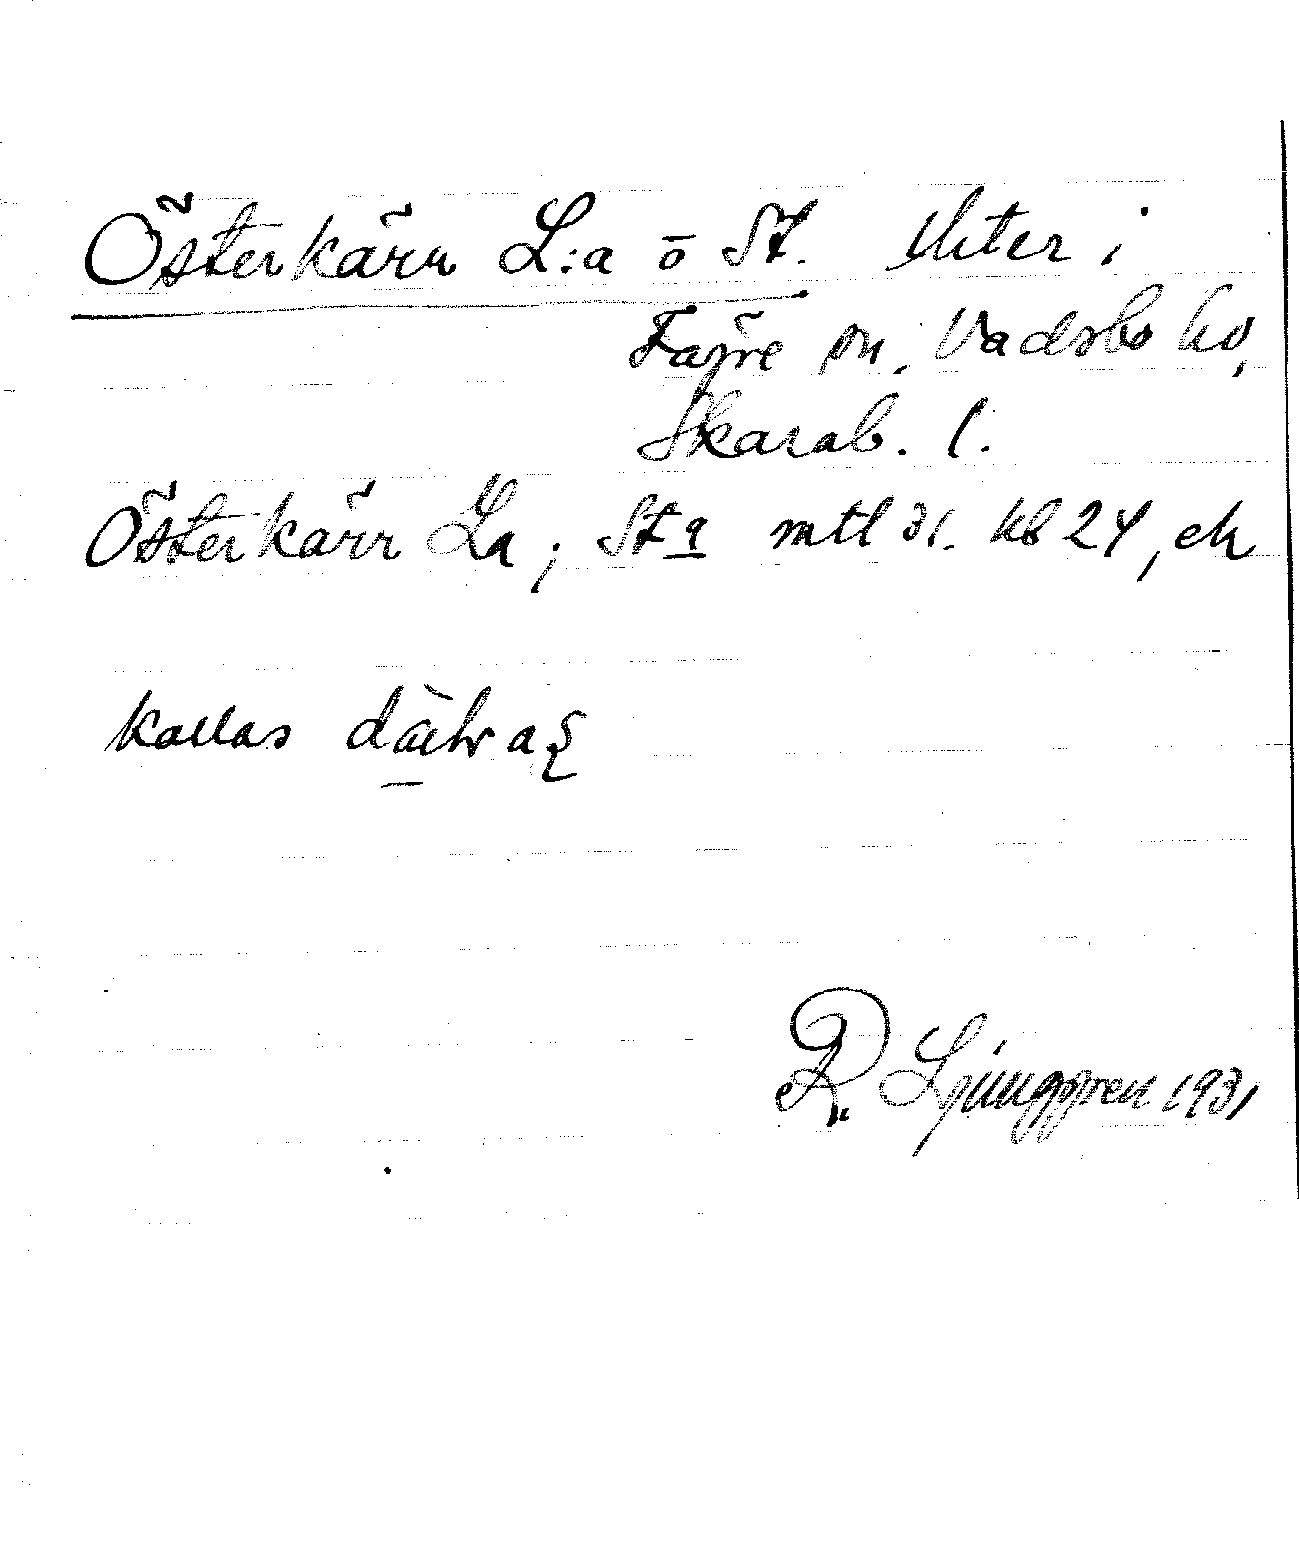 Österkärr L:a o St. i
Färe sn, Vadsbo hd,
Skarab. l.
Österkärr La; Sta mtl 31. kb 24, ek
kallas
R. Ljunggren 1931